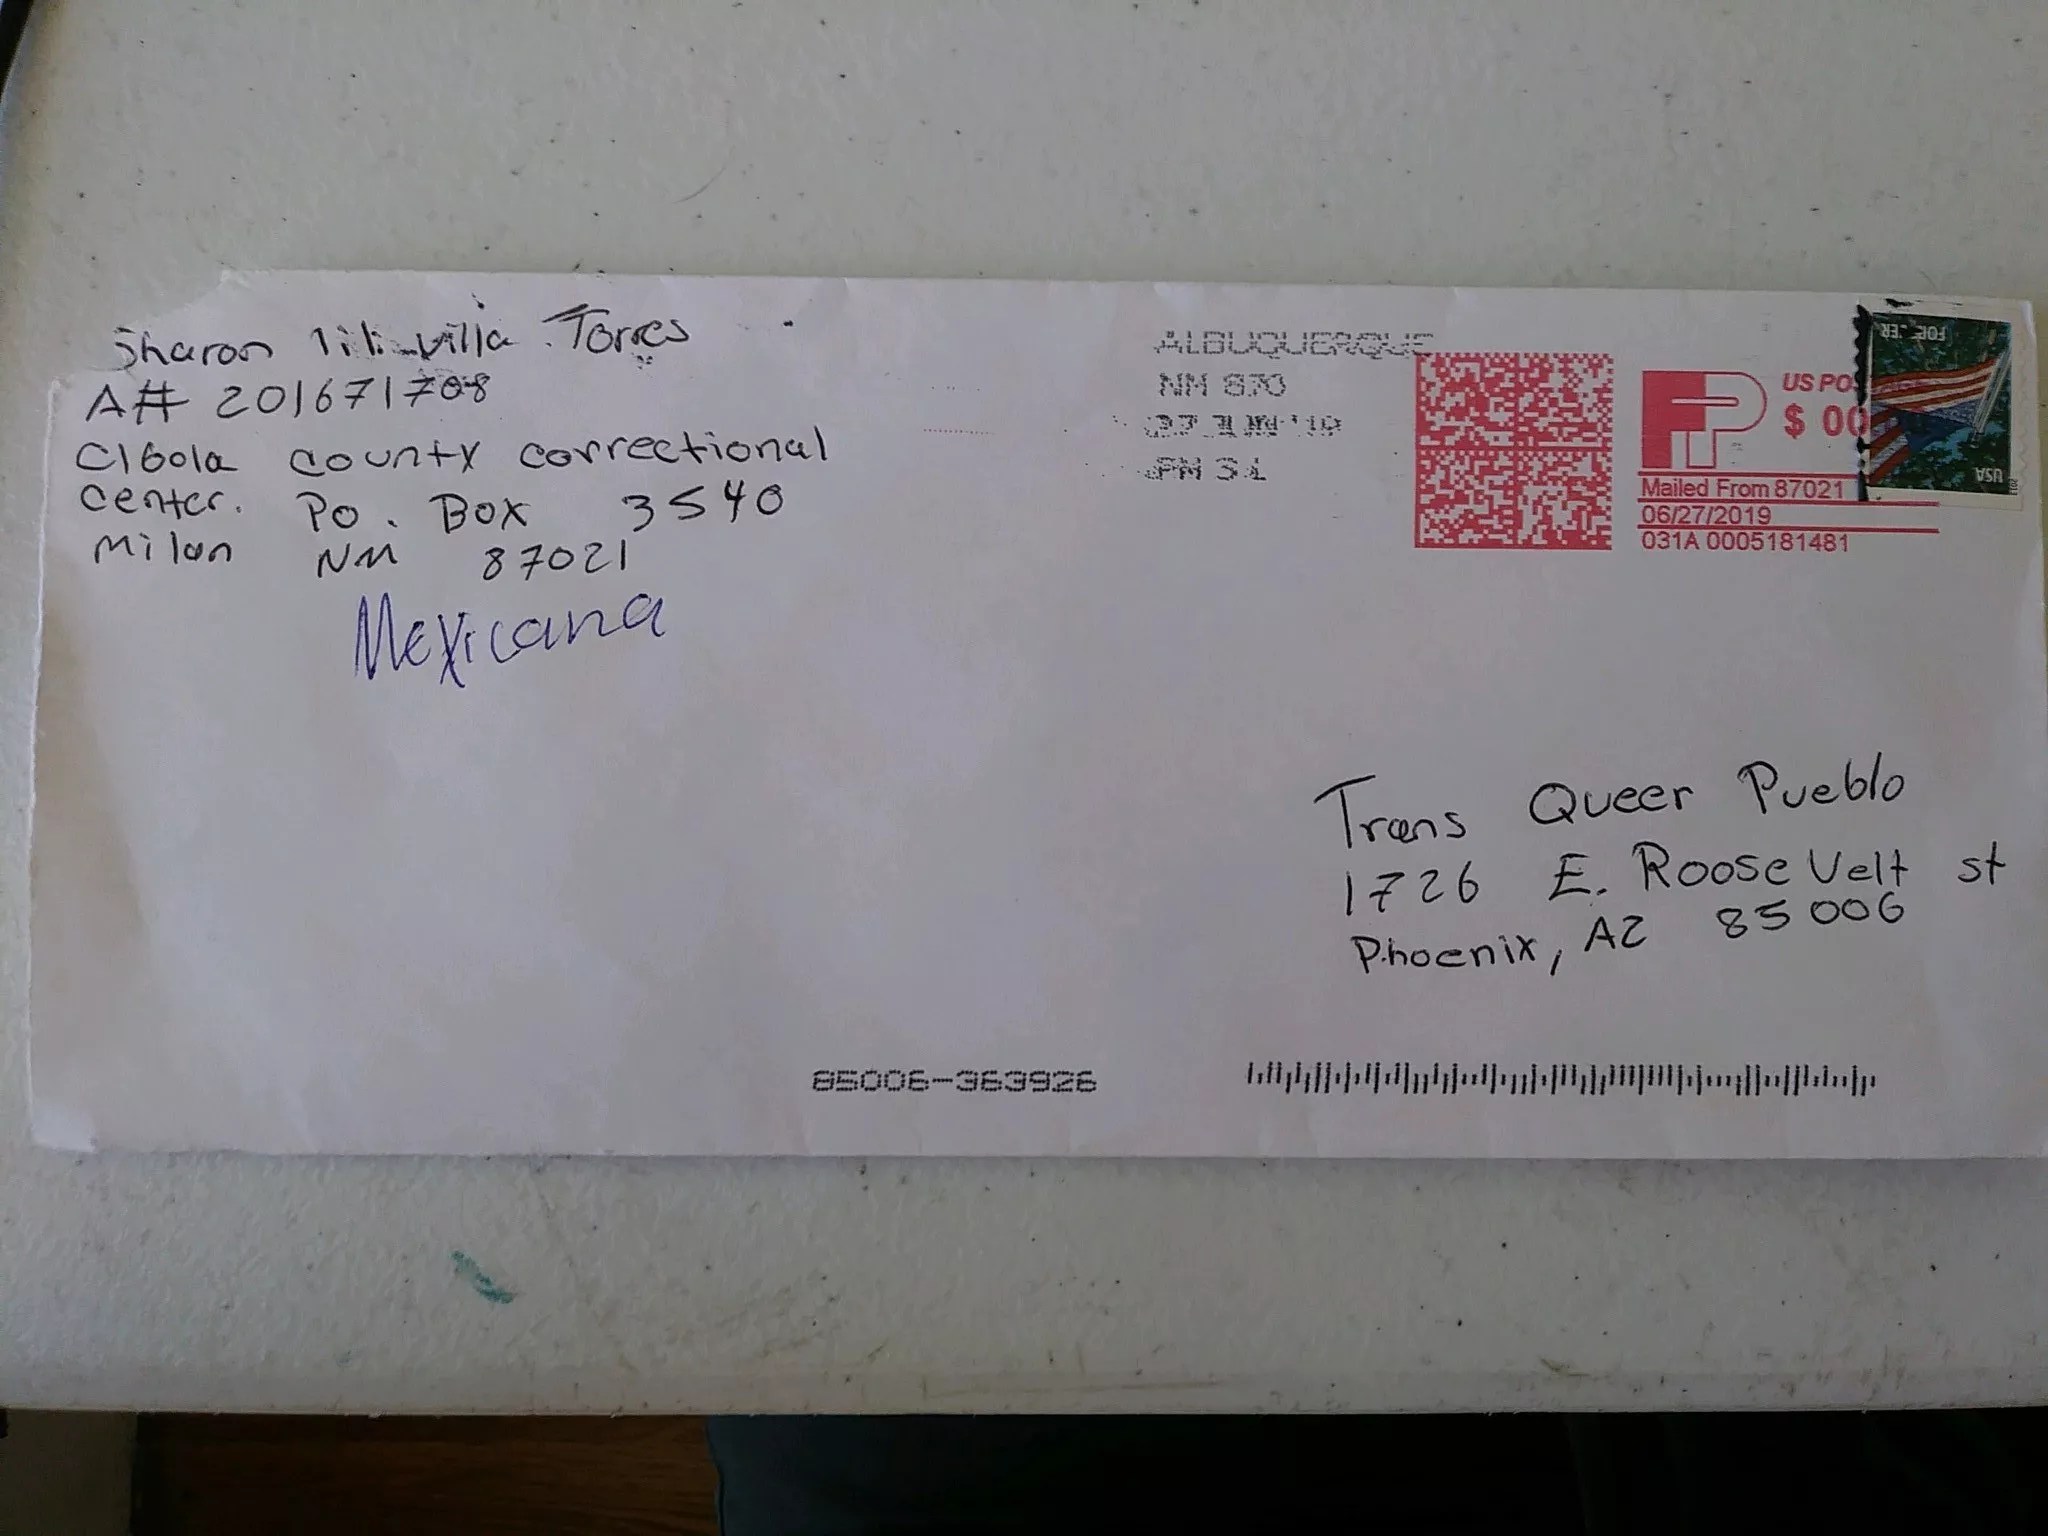 Sharon lili villa Torres
A# 201671708
Cibola county correctional
center. Po. Box 3540
Milan NM 87021
Mexicana
ALBUQUERQUE
NM 870
27 JUN '19
PM 3 L
FP
US PO
$ 00
Mailed From 87021
06/27/2019
031A 0005181481
FOREVER
USA
Trans Queer Pueblo
1726 E. Roosevelt st
Phoenix, AZ 85006
85006-363926